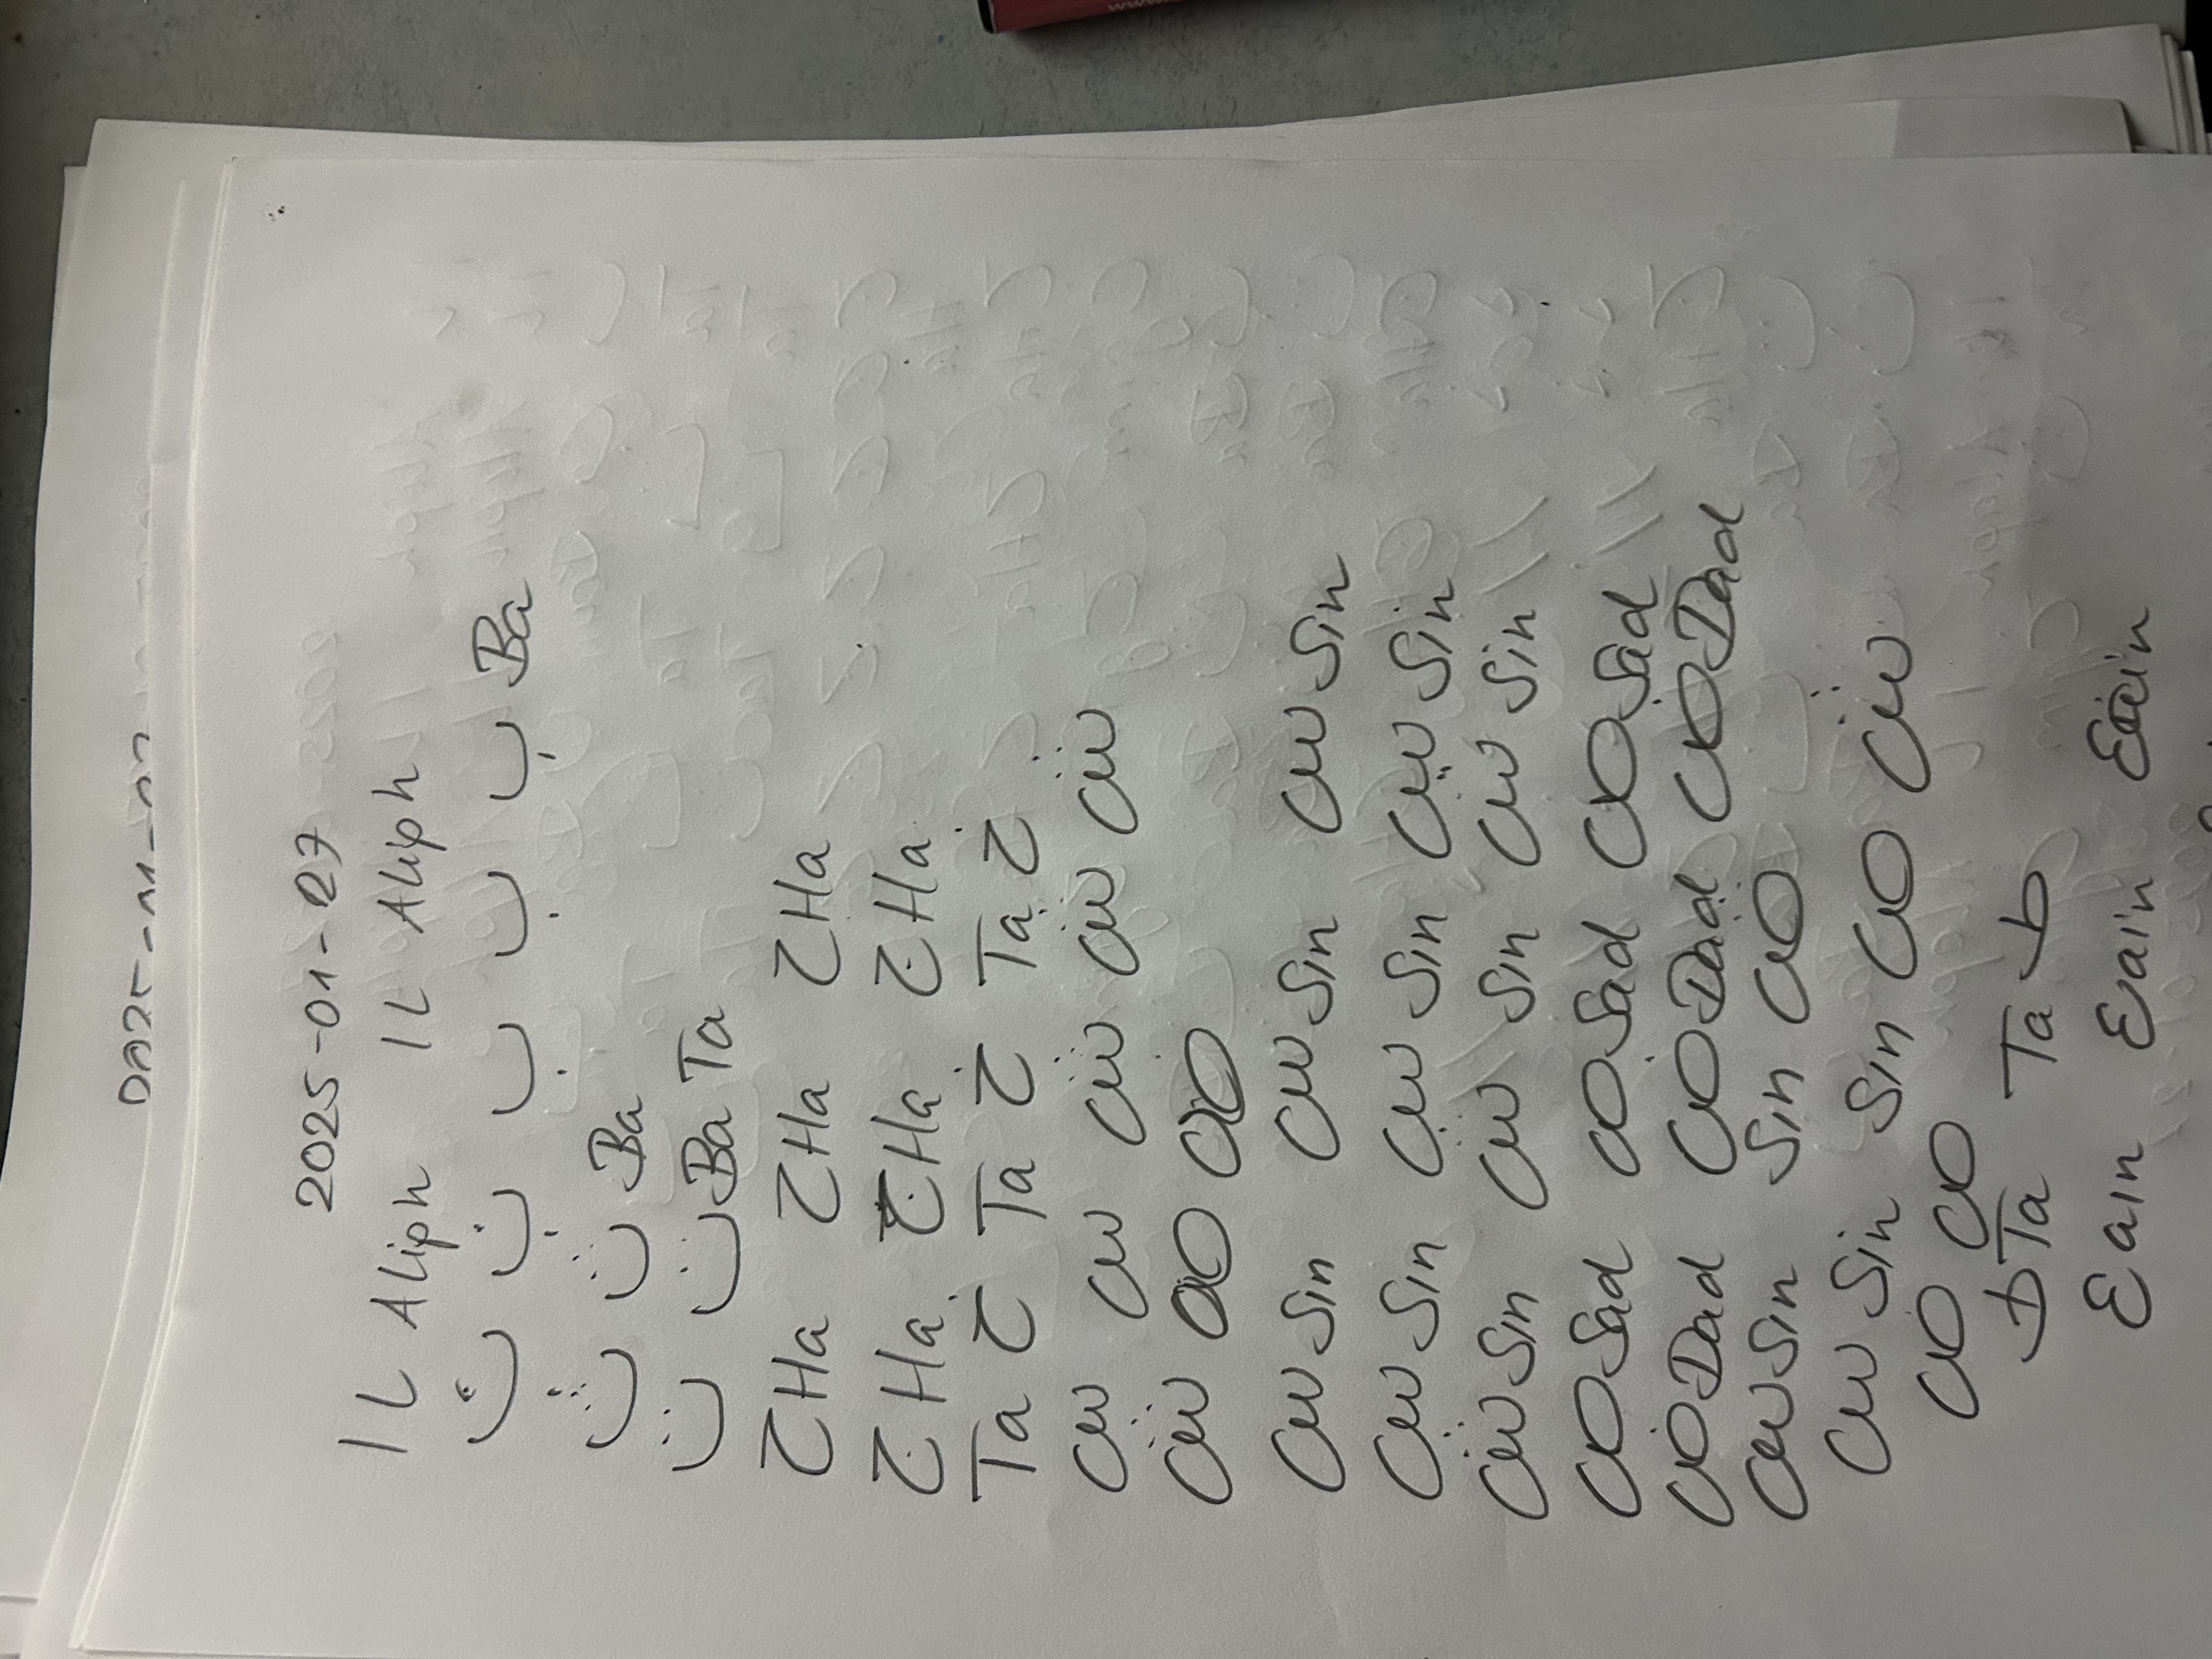 2025-01-27
ا ل Aliph ا ل Aliph
ب ب ب Ba
ث ث Ba
ت ت Ba Ta
ح Ha ح Ha ح Ha
ج Ha ج Ha ج Ha
Ta خ Ta خ Ta خ
س س ش ش ش
ش ص ص
س Sin س Sin س Sin
س Sin س Sin س Sin
ش Sin ش Sin ش Sin
ص Sad ص Sad ص Sad
ض Dad ض Dad ض Dad
س Sin Sin ص
س Sin Sin ص ش
ص ص
ط Ta Ta ط
Eain Eain Eain